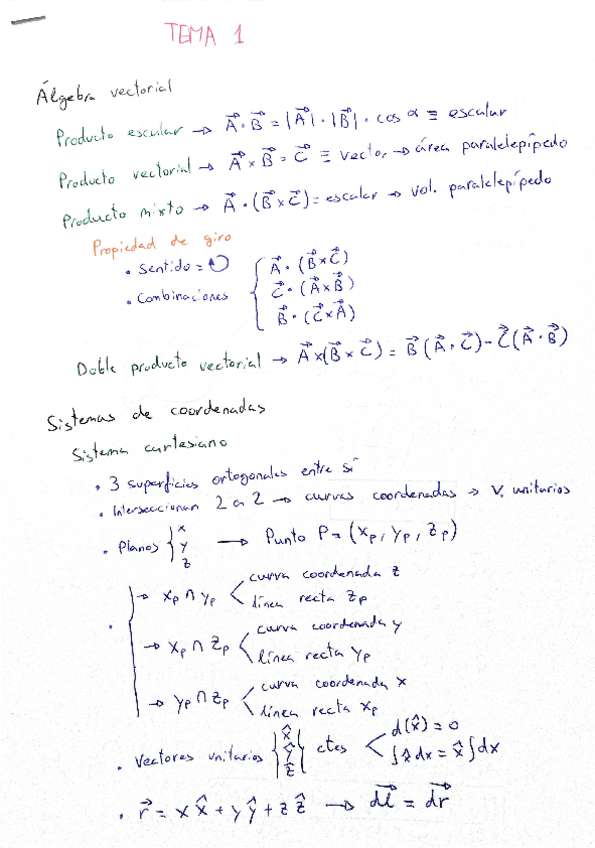 TEMA 1
Álgebra vectorial
Producto escalar → A⃗ · B⃗ = |A⃗| · |B⃗| · cos α ≡ escalar
Producto vectorial → A⃗ × B⃗ = C⃗ ≡ vector → área paralelepípedo
Producto mixto → A⃗ · (B⃗ × C⃗) = escalar → vol. paralelepípedo
Propiedad de giro
· Sentido = ↻
A⃗ · (B⃗ × C⃗)
· Combinaciones { C⃗ · (A⃗ × B⃗)
B⃗ · (C⃗ × A⃗)
Doble producto vectorial → A⃗ × (B⃗ × C⃗) = B⃗ (A⃗ · C⃗) - C⃗ (A⃗ · B⃗)
Sistemas de coordenadas
Sistema cartesiano
· 3 superficies ortogonales entre sí
· Interseccionan 2 a 2 → curvas coordenadas → v. unitarios
x
· Planos } y → Punto P = (xp, yp, zp)
z
→ xp ∩ yp < curva coordenada z
línea recta zp
· → xp ∩ zp < curva coordenada y
línea recta yp
→ yp ∩ zp < curva coordenada x
línea recta xp
· Vectores unitarios { x̂ ŷ ẑ } ctes < d(x̂) = 0
∫ x̂ dx = x̂ ∫ dx
· r⃗ = x x̂ + y ŷ + z ẑ → dl⃗ = dr⃗